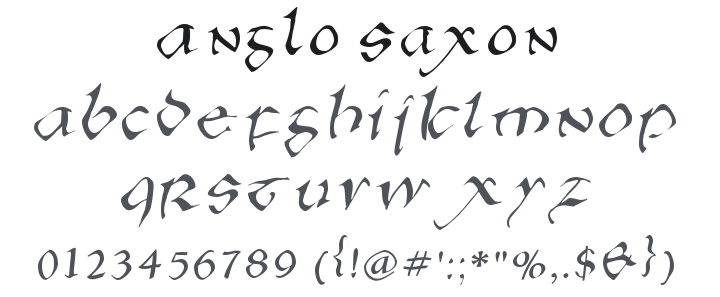 anglo saxon
abcdefghijklmnop
qrstuvw xyz
0123456789 ({!@#':;*"%,.$&})